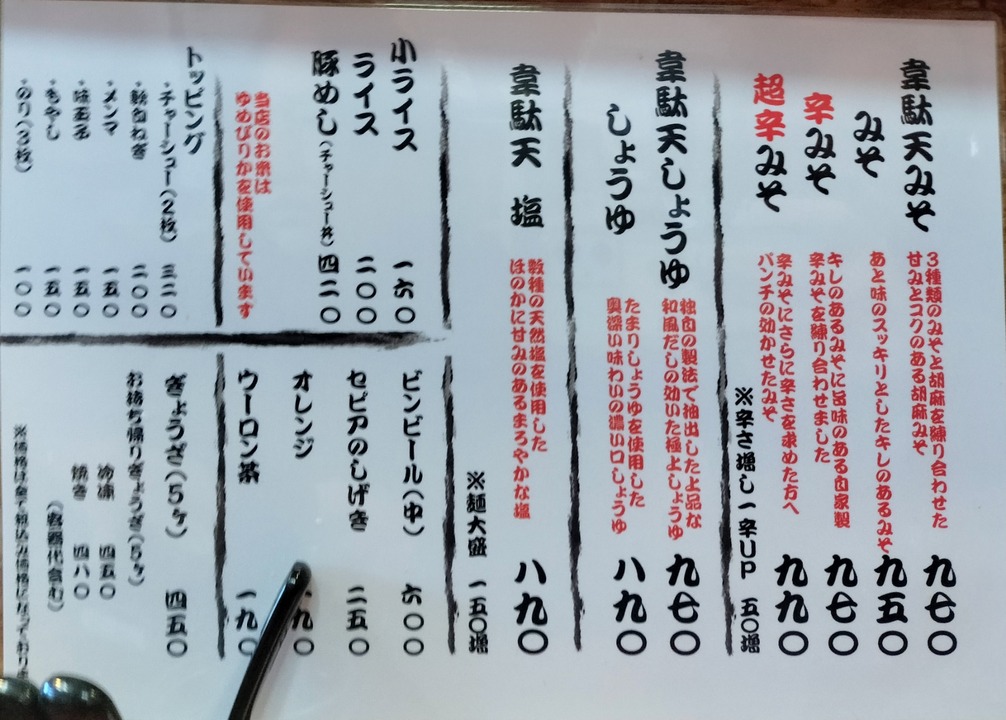 韋駄天みそ
3種類のみそと胡麻を練り合わせた
甘みとコクのある胡麻みそ
九七〇
みそ
あと味のスッキリとしたキレのあるみそ
九五〇
辛みそ
キレのあるみそに旨味のある自家製
辛みそを練り合わせました
九七〇
超辛みそ
辛みそにさらに辛さを求めた方へ
パンチの効かせたみそ
九九〇
※辛さ増し一辛UP 五〇増
韋駄天しょうゆ
独自の製法で抽出した上品な
和風だしの効いた極上しょうゆ
九七〇
しょうゆ
たまりしょうゆを使用した
奥深い味わいの濃い口しょうゆ
八九〇
韋駄天 塩
数種の天然塩を使用した
ほのかに甘みのあるまろやかな塩
八九〇
※麺大盛 一五〇増
小ライス 一六〇
ライス 二〇〇
豚めし(チャーシュー丼) 四二〇
当店のお米は
ゆめぴりかを使用しています
トッピング
・チャーシュー(2枚) 三二〇
・軟白ねぎ 二〇〇
・メンマ 一五〇
・味玉子 一五〇
・もやし 一五〇
・のり(3枚) 一〇〇
ビンビール(中) 六〇〇
セピアのしげき 二五〇
オレンジ 九〇
ウーロン茶 一九〇
ぎょうざ(5ヶ) 四五〇
お持ち帰りぎょうざ(5ヶ)
冷凍 四五〇
焼き 四八〇
(容器代含む)
※価格は全て税込み価格になっており